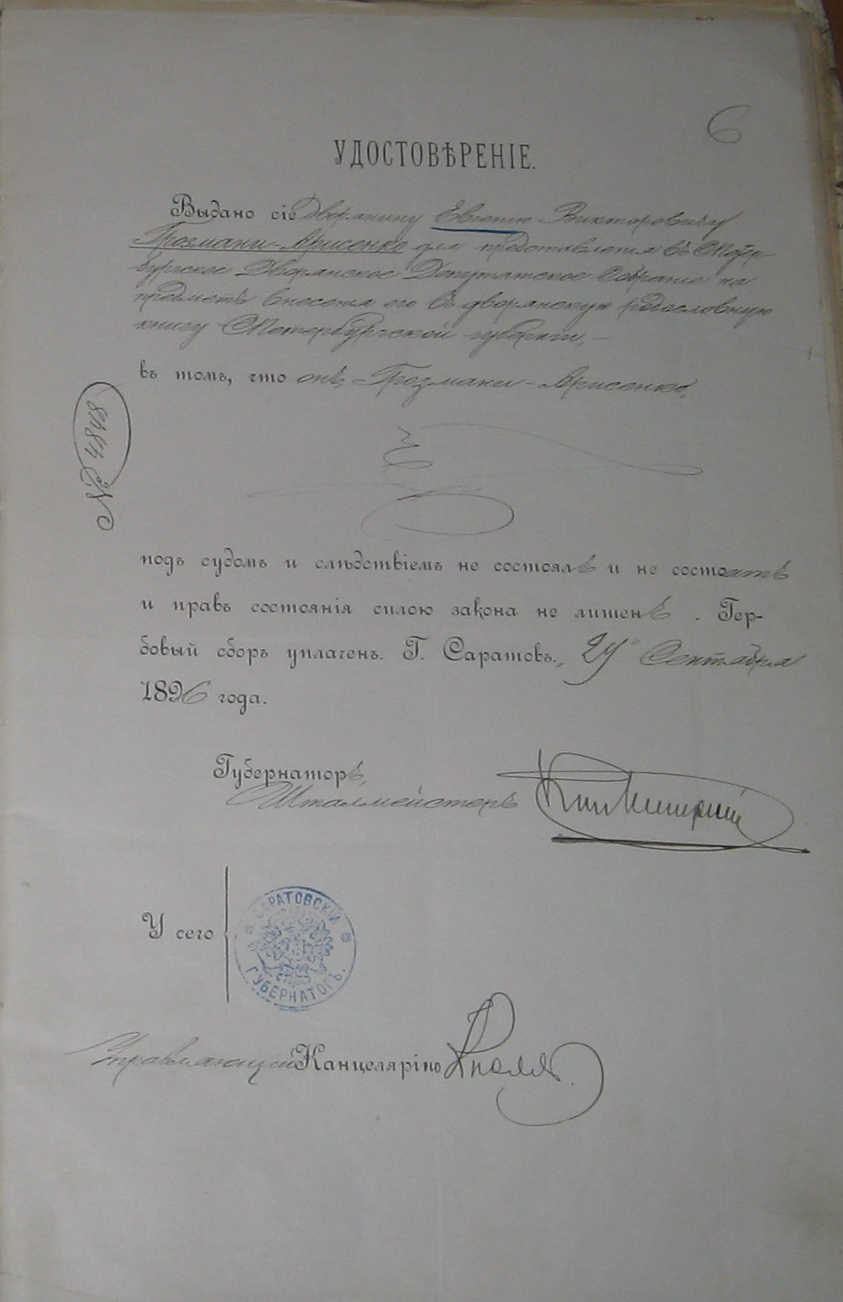 6
УДОСТОВѢРЕНІЕ.
Выдано сіе Дворянину Евгенію Викторовичу
Грозмани-Арисенко для представленія въ СПетер-
бургское Дворянское Депутатское Собраніе на
предметъ внесенія его въ дворянскую родословную
книгу СПетербургской губерніи, —
въ томъ, что онъ, Грозмани-Арисенко,
№ 4848
подъ судомъ и слѣдствіемъ не состоялъ и не состоитъ
и правъ состоянія силою закона не лишенъ . Гер-
бовый сборъ уплаченъ. Г. Саратовъ. Сентября
1896 года.
Губернаторъ,
Шталмейстеръ
У сего
САРАТОВСКІЙ
ГУБЕРНАТОРЪ.
Управляющій Канцеляріею